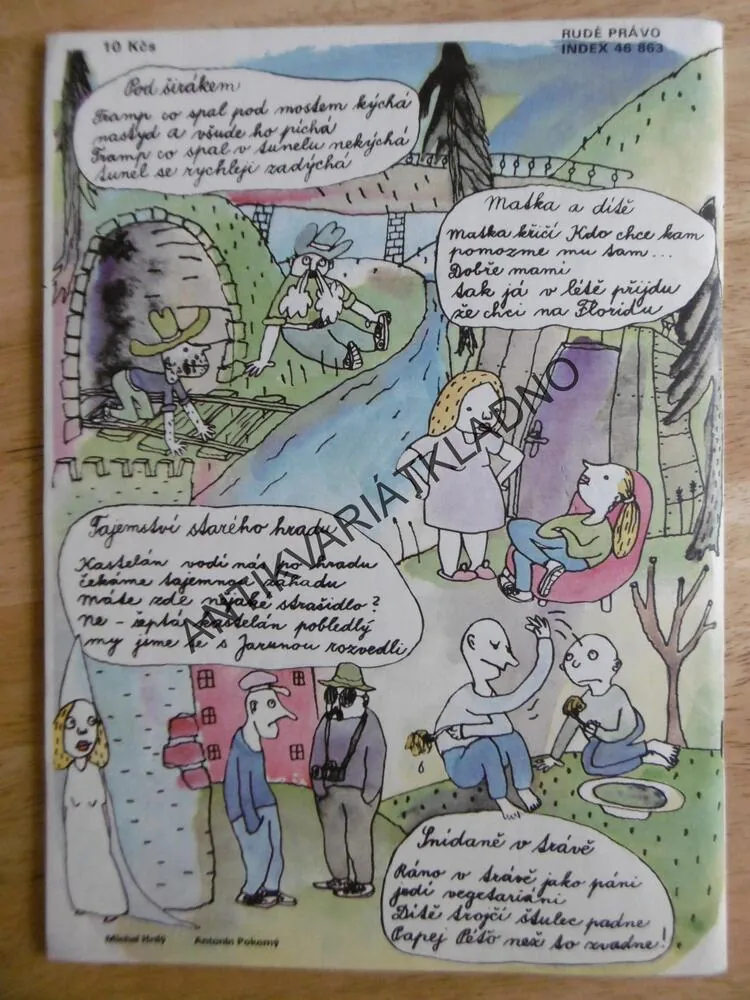 10 Kčs
RUDÉ PRÁVO
INDEX 46 863
Pod širákem
Tramp co spal pod mostem kýchá
nastyd a všude ho píchá
Tramp co spal v tunelu nekýchá
tunel se rychleji zadýchá
Matka a dítě
Matka křičí Kdo chce kam
pomozme mu tam...
Dobře mami
tak já v létě přijdu
že chci na Floridu
ANTIKVARIÁTKLADNO
Tajemství starého hradu
Kastelán vodí nás po hradu
čekáme tajemnou záhadu
Máte zde nějaké strašidlo?
Ne - šeptá kastelán pobledlý
my jsme se s Jarunou rozvedli
Snídaně v trávě
Ráno v trávě jako páni
jedí vegetariáni
Dítě trojčí štulec padne
Papej Péťo než to zvadne!
Michal Hrdý
Antonín Pokorný